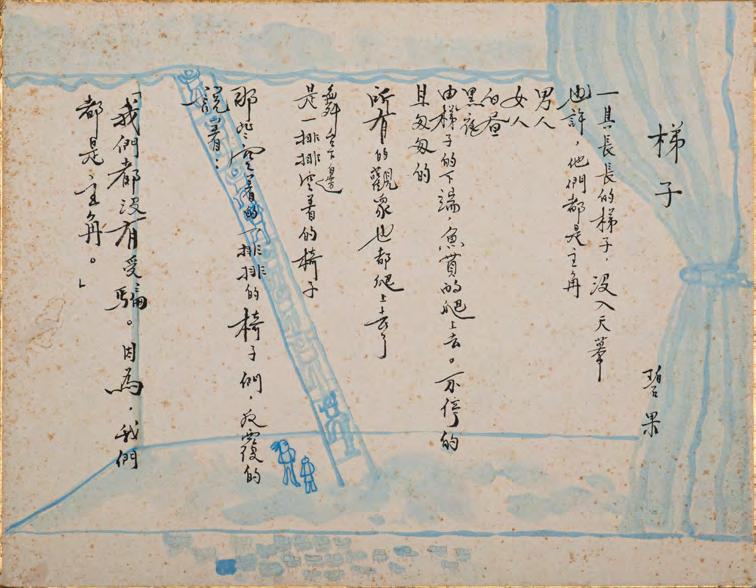 梯子
碧果
一具長長的梯子,沒入天幕
也許,他們都是主角
男人
女人
白晝
黑夜
由梯子的下端,魚貫的爬上去。不停的
且匆匆的
所有的觀眾也都爬上去了
舞台下邊
是一排排空着的椅子
那些空着的一排排的椅子們,反覆的
說着:
「我們都沒有受騙。因為,我們
都是主角。」